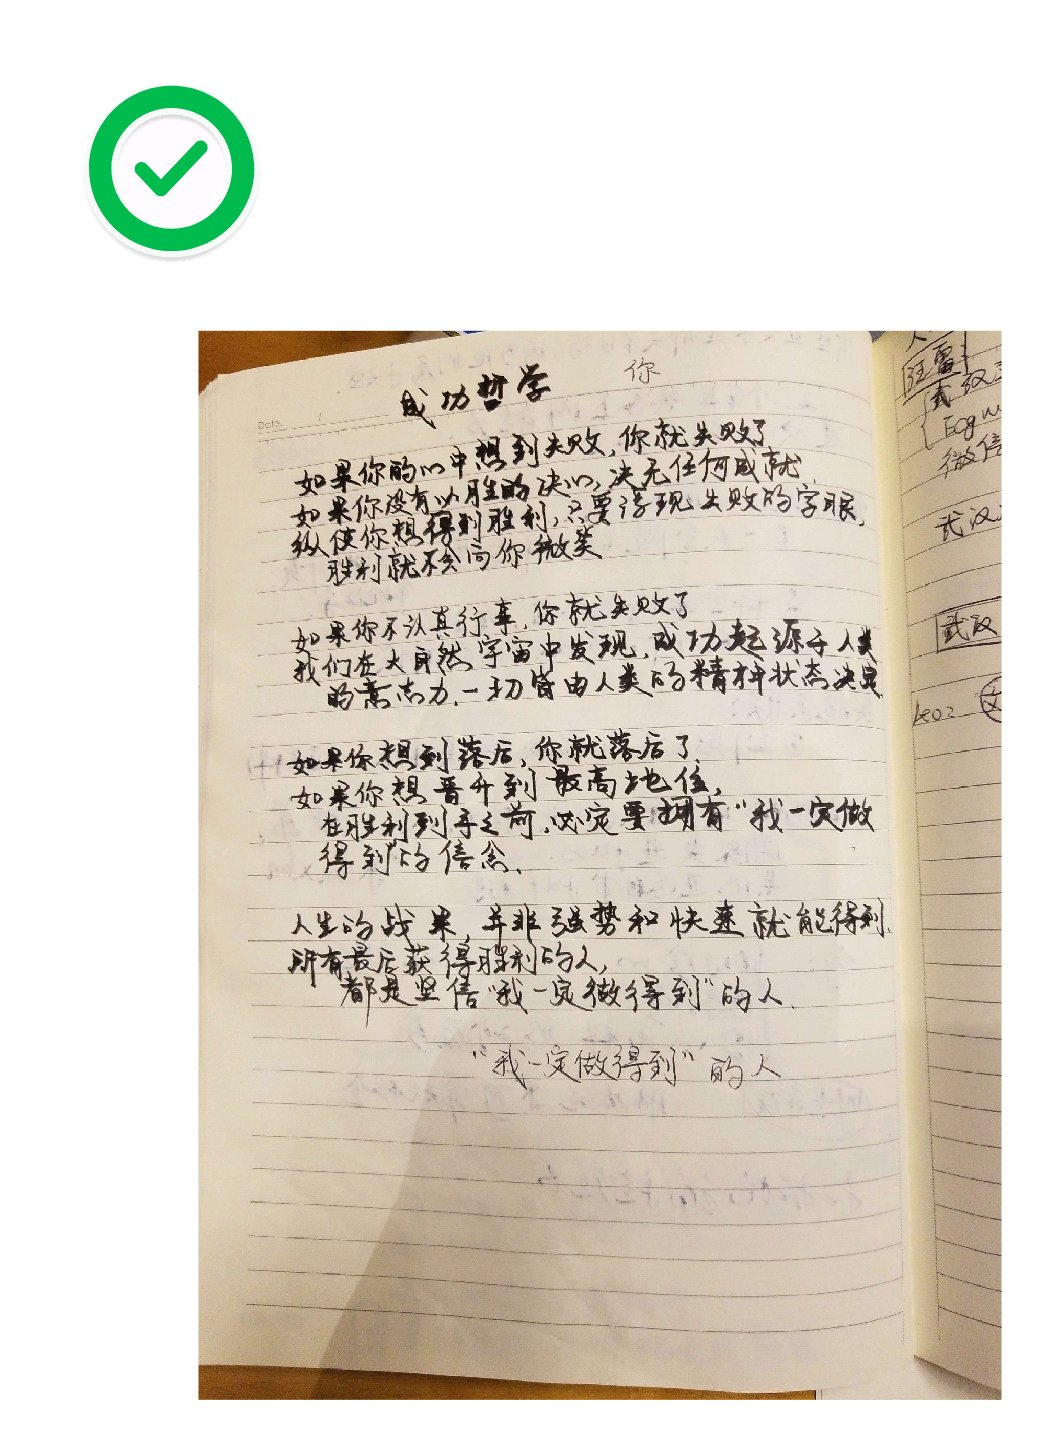 你
成功哲学
Date.
如果你的心中想到失败，你就失败了
如果你没有必胜的决心，决无任何成就，
纵使你想得到胜利，只要浮现失败的字眼，
胜利就不会向你微笑
如果你不认真行事，你就失败了
我们在大自然宇宙中发现，成功起源于人类
的意志力，一切皆由人类的精神状态决定，
如果你想到落后，你就落后了
如果你想晋升到最高地位，
在胜利到手之前，必定要拥有“我一定做
得到”的信念，
人生的战果，并非强势和快速就能得到，
所有最后获得胜利的人，
都是坚信“我一定做得到”的人，
“我一定做得到”的人
汪雷
微信
武汉
武汉